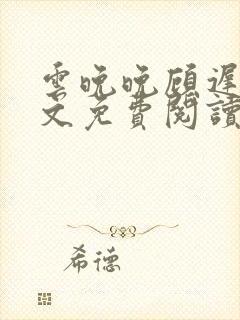 雲晚晚顾遲
文免費閱讀
希德